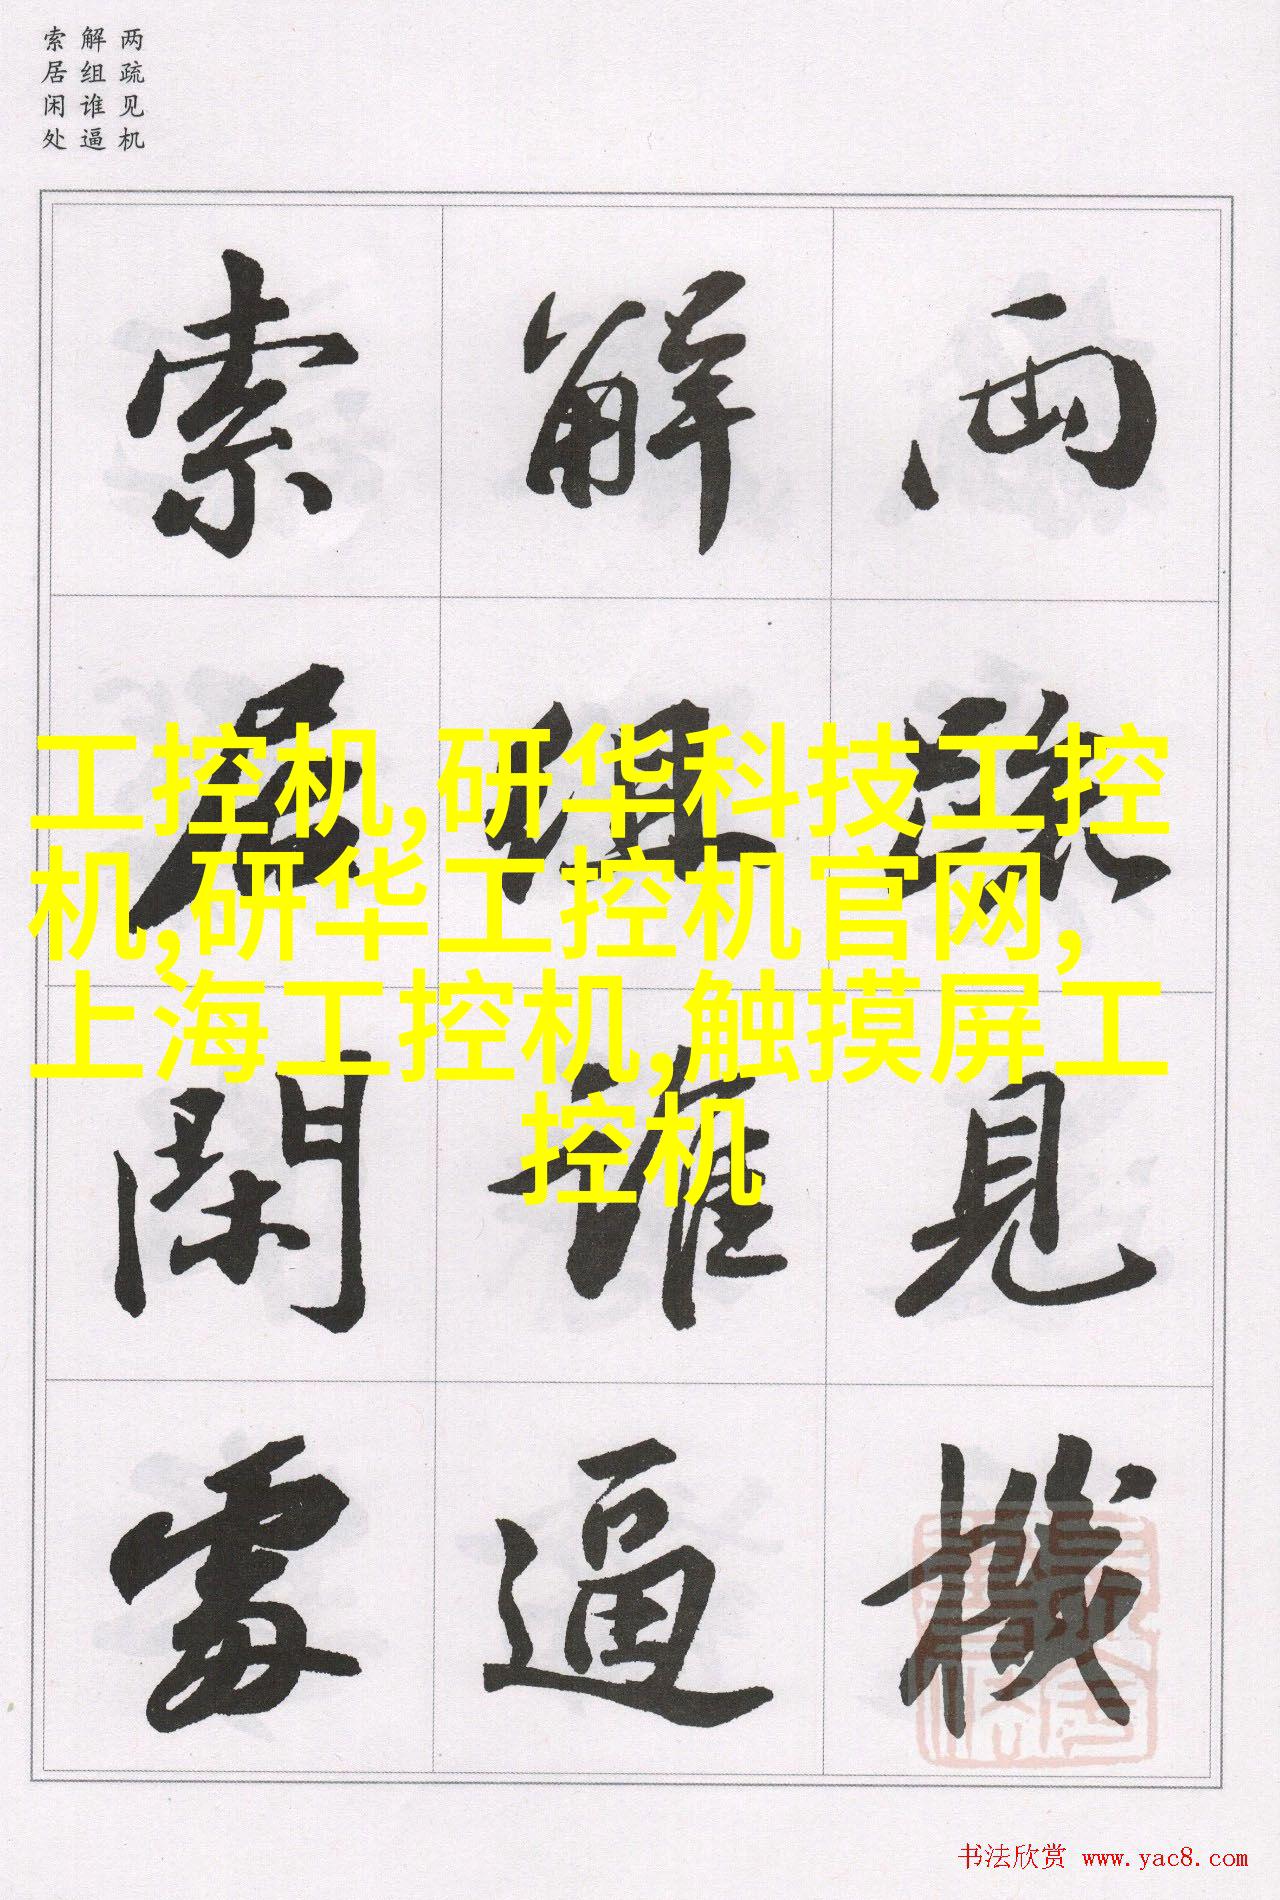 两疏见机
解组谁逼
索居闲处
两疏見機
解組誰逼
索居閑處
工控机,研华科技工控
机,研华工控机官网,
上海工控机,触摸屏工
控机
书法欣赏 www.yac8.com